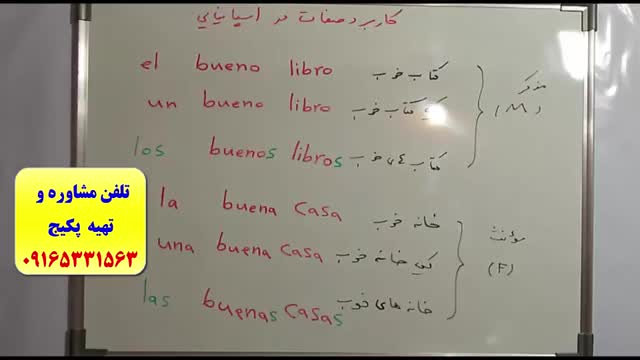 کاربرد صفات در اسپانیایی
el bueno libro کتاب خوب
un bueno libro یک کتاب خوب
los buenos libros کتاب های خوب
مذکر
(M)
la buena casa خانه خوب
una buena casa یک خانه خوب
las buenas casas خانه های خوب
مؤنث
(F)
تلفن مشاوره و
تهیه پکیج
۰۹۱۶۵۳۳۱۵۶۳